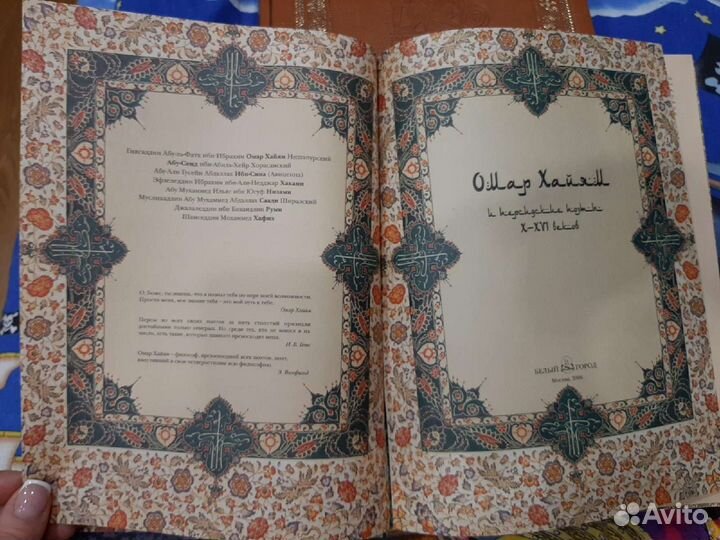 Гиясаддин Абу-ль-Фатх ибн-Ибрахим Омар Хайям Нишапурский
Абу-Саид ибн-Абиль-Хейр Хорасанский
Абу-Али Хусейн Абдаллах Ибн-Сина (Авиценна)
Эфзеледдин Ибрахим ибн-Али-Неджар Хакани
Абу Мухаммед Ильяс ибн Юсуф Низами
Муслихаддин Абу Мухаммед Абдаллах Саади Ширазский
Джалаледдин ибн Бахаиддин Руми
Шамсаддин Мохаммед Хафиз
О, Боже, ты знаешь, что я познал тебя по мере моей возможности.
Прости меня, мое знание тебя – это мой путь к тебе.
Омар Хайям
Персы из всех своих поэтов за пять столетий признали
достойными только семерых. Но среди тех, кто не вошел в их
число, есть такие, которые намного превосходят меня.
И.В. Гете
Омар Хайям – философ, превзошедший всех поэтов, поэт,
вместивший в свое четверостишие всю философию.
Э. Винфилд
Омар Хайям
и персидские поэты
X–XVI веков
БЕЛЫЙ ГОРОД
Москва,
Avito